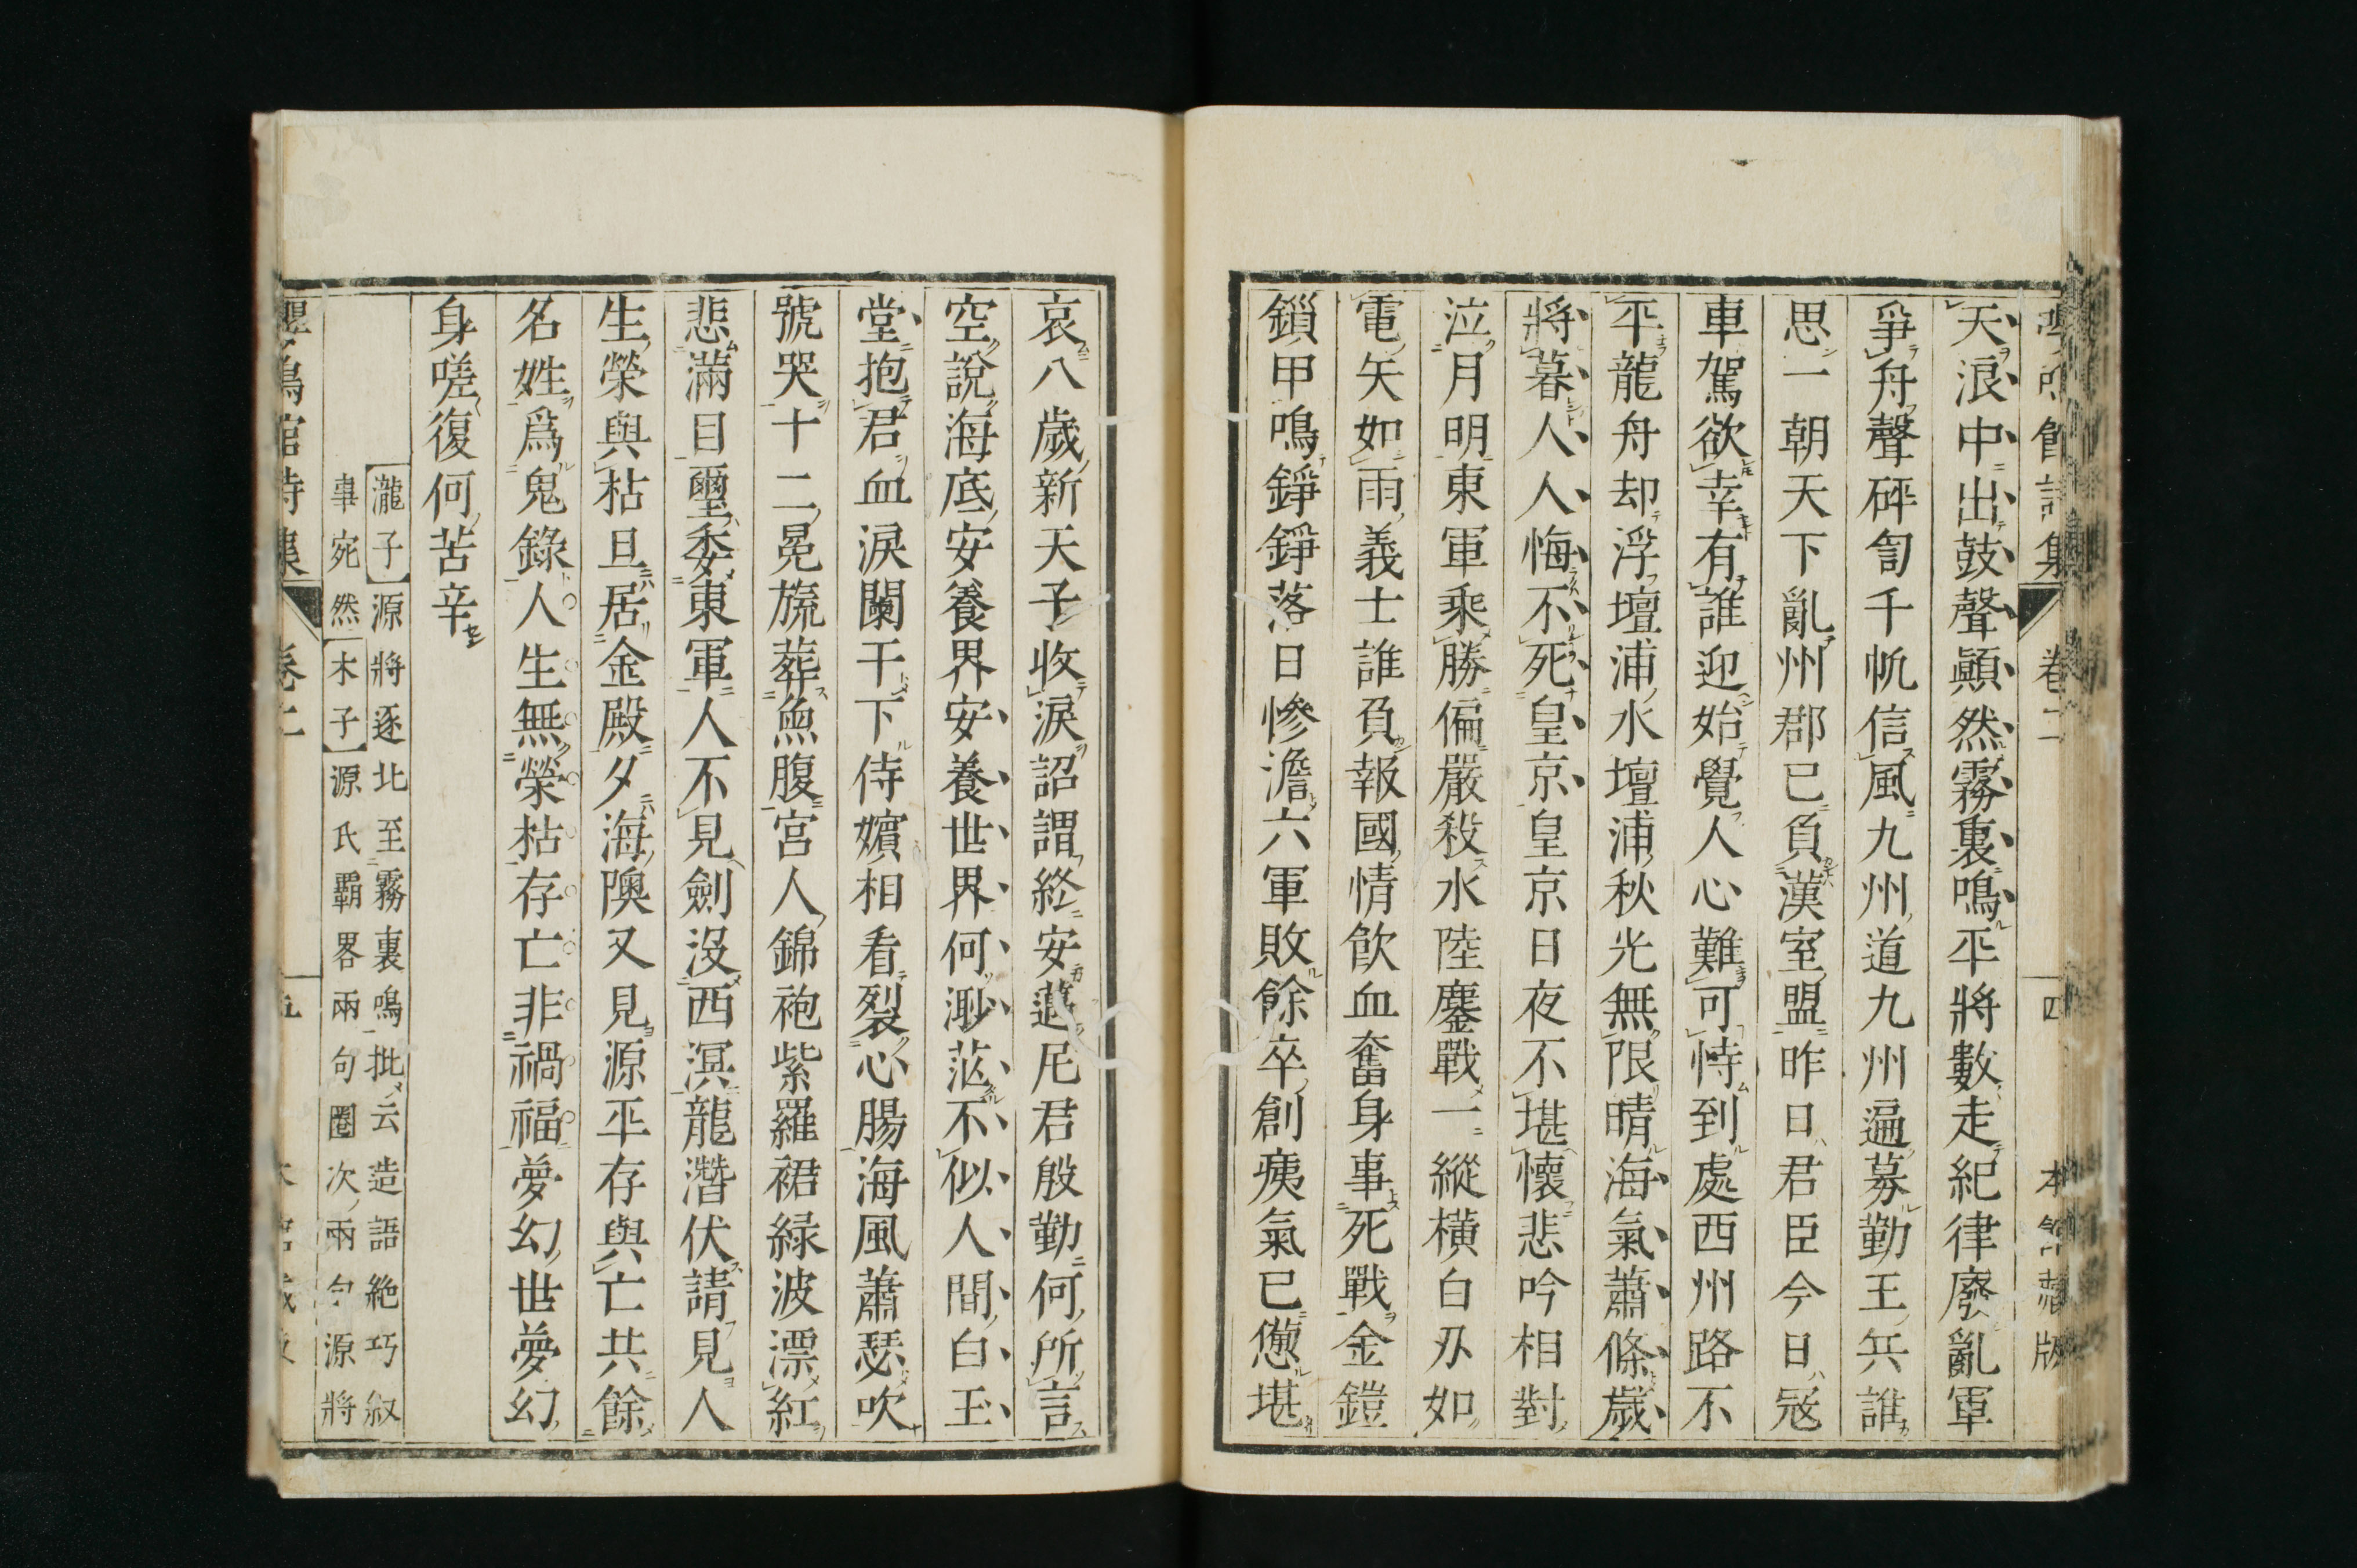 天浪中出鼓聲顚然霧裏鳴平將數走紀律廢亂軍
爭舟聲砰訇千帆信風九州道九州遍募勤王兵誰
思一朝天下亂州郡已負漢室盟昨日君臣今日冦
車駕欲幸有誰迎始覺人心難可恃到處西州路不
平龍舟却浮壇浦水壇浦秋光無限晴海氣蕭條歲
將暮人人悔不死皇京皇京日夜不堪懷悲吟相對
泣月明東軍乘勝偏嚴殺水陸鏖戰一縱橫白刃如
電矢如雨義士誰負報國情飮血奮身事死戰金鎧
鎖甲鳴錚錚落日慘澹六軍敗餘卒創痍氣已憊堪
哀八歲新天子收淚詔謂終安薖尼君殷勤何所言
空說海底安養界安養世界何渺茫不似人間白玉
堂抱君血淚闌干下侍嬪相看裂心腸海風蕭瑟吹
號哭十二冕旒葬魚腹宮人錦袍紫羅裙緑波漂紅
悲滿目璽委東軍人不見劍沒西溟龍潛伏請見人
生榮與枯旦居金殿夕海隩又見源平存與亡共餘
名姓爲鬼錄人生無榮枯存亡非禍福夢幻世夢幻
身嗟復何苦辛
瀧子 源將逐北至霧裏鳴批云造語絶巧叙
事宛然 木子 源氏覇畧兩句圈次兩句源將